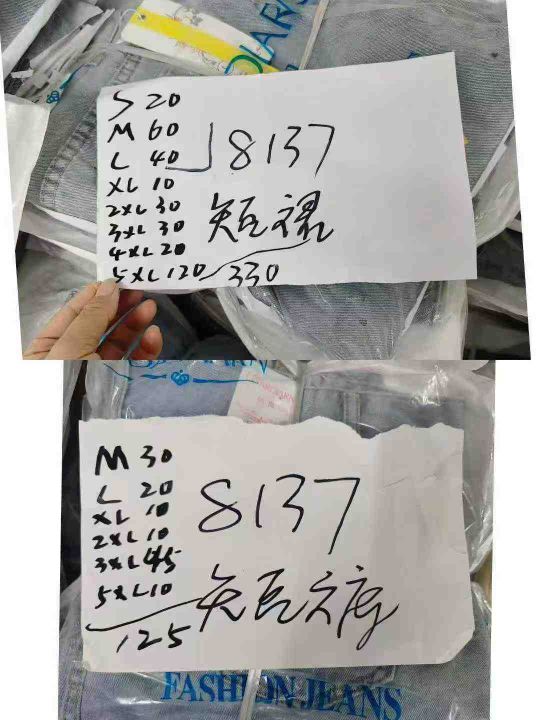 DIARN
S 20
M 60
L 40
XL 10
2XL 30
3XL 30
4XL 20
5XL 120
330
8137
短
M 30
L 20
XL 10
2XL 10
3XL 45
5XL 10
125
8137
短裤
FASHION JEANS